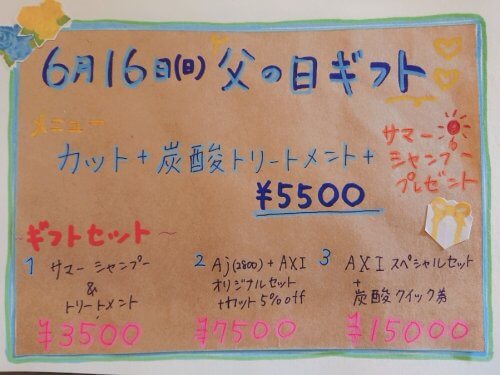 6月16日(日) 父の日ギフト
メニュー
カット+炭酸トリートメント+
サマー
シャンプー
プレゼント
¥5500
~ギフトセット~
1 サマー シャンプー
&
トリートメント
¥3500
2 Aj(2800)+AXI
オリジナルセット
+カット5%off
¥7500
3 AXI スペシャルセット
+
炭酸クイック券
¥15000